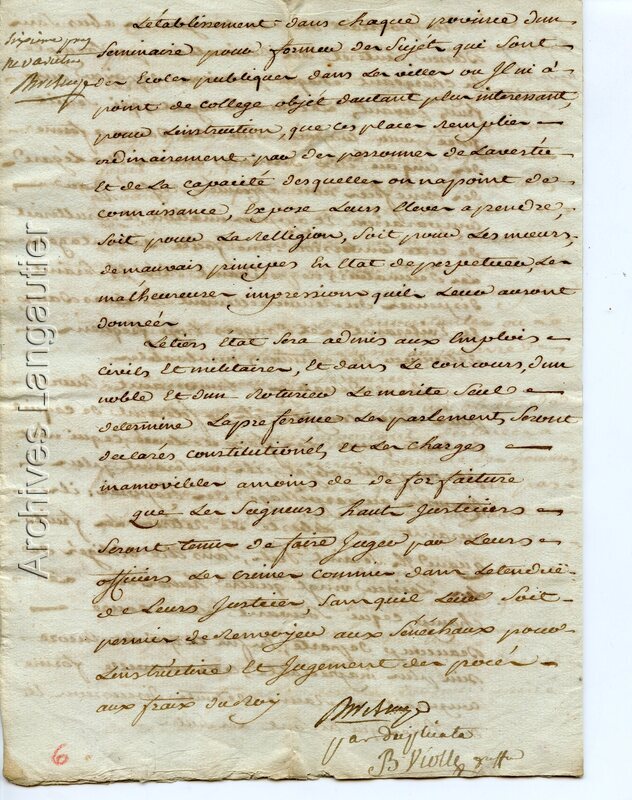 Létablissement dans chaque province dun
Seminaire pour former des Sujét qui sont
des Ecoles publiques dans les villes ou Jl ni à
point de college objét dautant plus interessant,
pour Linstruction, que ces places Remplies
ordinairement par des personnes de La vertu
Et de La capacité desquelles on na point de
connaissance, Expose Leurs Eleves a prendre,
Soit pour La Relligion, Soit pour Les mœurs,
de mauvais principes En Etat de perpetuer, Les
malheureuses impression quils Leur auront
donnéés
Le tiers État Sera admis aux Emplois
civils et militaires, Et dans Le concours, dun
noble Et dun Roturier Le merite Seul
determine La preference Les parlements Seront
declarés constitutionéls Et Les charges
inamovibles amoins de de forfaiture
que Les Seigneurs haut Justiciers
Seront tenus de faire Juger par Leurs
officiers Les crimes commis dans Letendue
de Leurs Justices, Sans quil Leur Soit
permis de Renvoyer aux Sénéchaux pour
Linstruction Et Jugement des procés
aux fraix du Roy
Sixieme page
ne varietur
par duplicata
B Violle
6
Archives Langautier